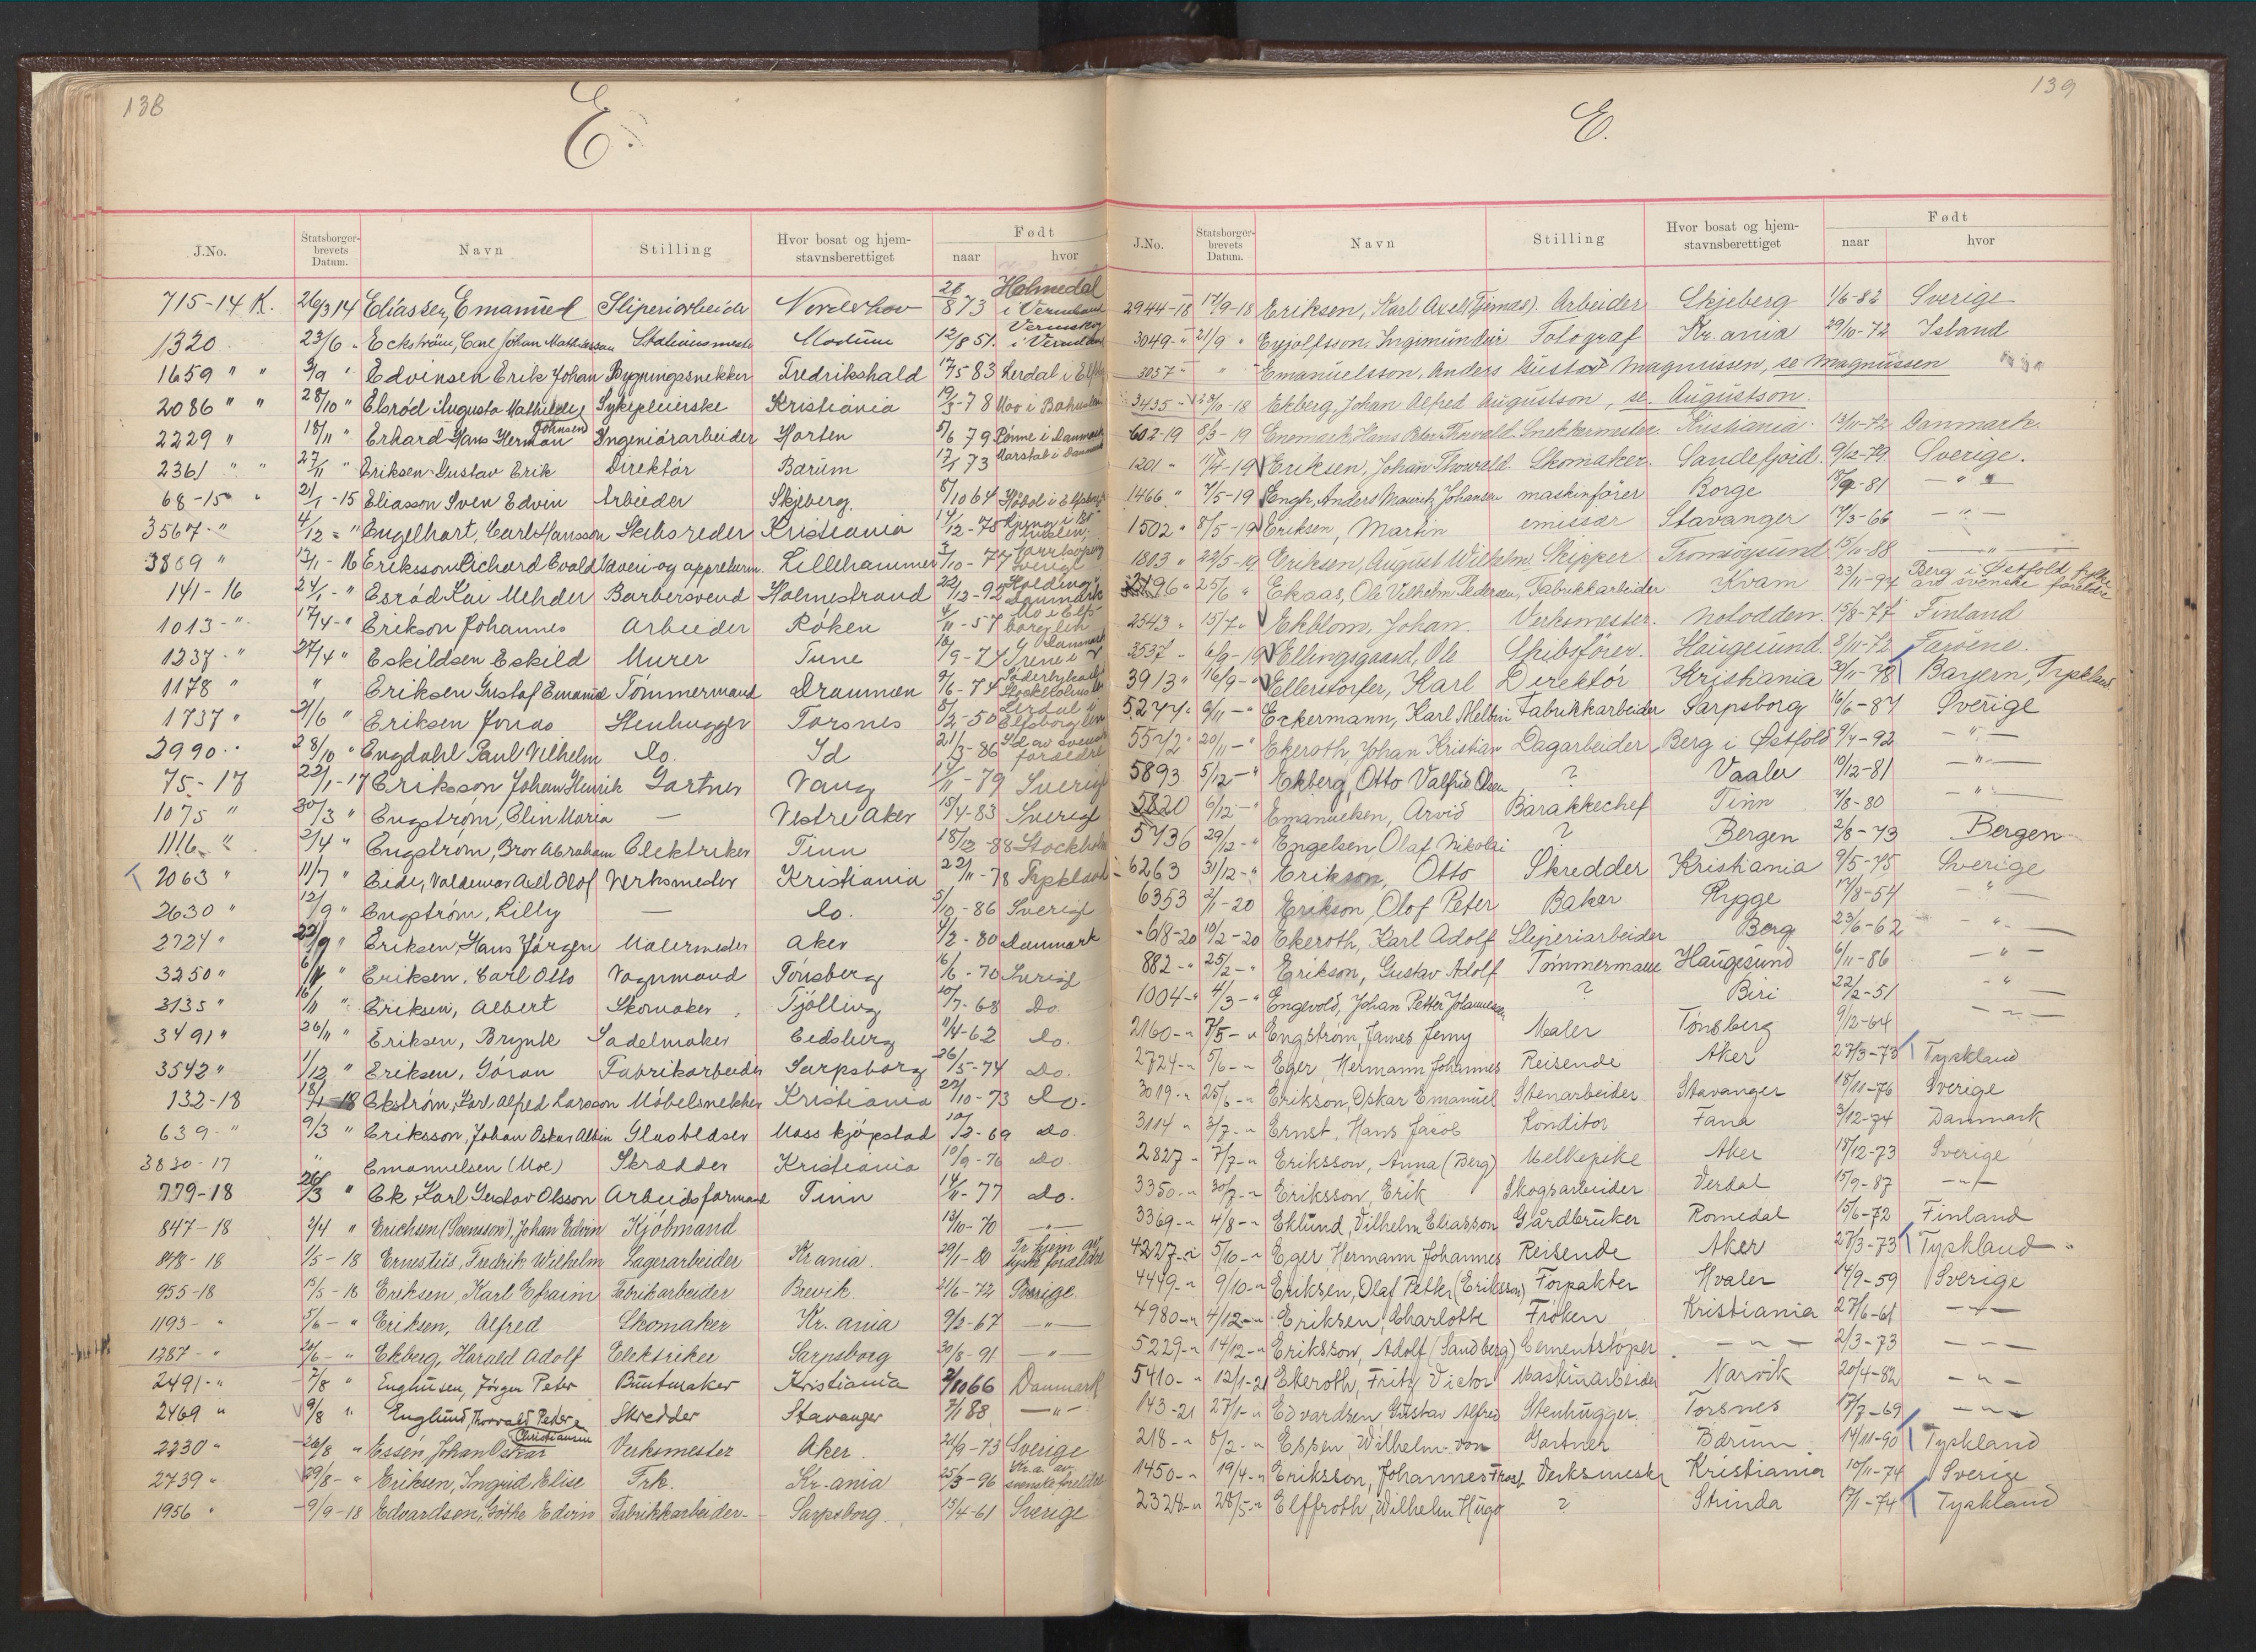 138
E.
J.No. Statsborgerbrevets Datum. Navn Stilling Hvor bosat og hjemstavnsberettiget Født naar hvor
715-14 K. 26/3 14 Eliassen, Emanuel Sliperiarbeider Norderhov 28/8 73 Holmedal i Vermland
1320 23/6 " Eckström, Carl Johan Mathiasson Stationsmester Modum 12/8 51. i Vermland
1659 " " 3/9 " Edvinsen Erik Johan Bygningssnekker Fredrikshald 17/5 83 Lerdal i Elfsb
2086 " " 28/10 " Elsrød Augusta Mathilde, Johnsen Sykepleierske Kristiania 19/3-78 Moo i Bohuslen
2229 " 18/11 " Erhard Hans Herman Ingeniørarbeider Horten 5/6 79 Rønne i Danmark
2361 " " 27/11 " Eriksen Gustav Erik Direktør Bærum 17/1 73 Marstal i Danmark
68-15 " 21/1-15 Eliasson Sven Edvin Arbeider Skjeberg 8/10 64
3567-" 4/12-" Engelhart, Carl Hansson Skibsreder Kristiania 14/12-75
3869 " 13/1-16 Eriksson Richard Evald Væveri- og appreturm. Lillehammer 3/10-77 Norrkøping Sverige
141-16 24/1-" Esrød Kai Mehder Barbersvend Holmestrand 22/12-92 Kolding Danmark
1013-" 17/4-" Erikson Johannes Arbeider Røken 4/11-57 Mo i Elfsborg len
1237-" 27/4 " Eskildsen Eskild Murer Tune 16/9-74 Danmark
1178 " " Eriksen Gustaf Emanuel Tømmermand Drammen 9/6-74 Stockholms
1737 " 21/6 " Eriksen Jonas Stenhugger Torsnes 5/2-50 Lerdal i Elfsborg len
2990 " 28/10 " Engdahl Paul Vilhelm Do. Id 21/3-86 Id av svenske forældre
75-17 22/1-17 Eriksson Johan Henrik Gartner Vang 14/11-79 Sverige
1075 " 30/3 " Engstrøm, Elin Maria — Vestre Aker 15/4-83 Sverige
1116 " 2/4 " Engstrøm, Bror Abraham Elektriker Tinn 18/12-88 Stockholm
2063 " 11/7 " Eide, Valdemar Axel Olof Verksmester Kristiania 22/11-78 Tyskland
2630 " 12/9 " Engstrøm, Lilly — Do. 5/10-86 Sverige
2724 " 22/9 " Eriksen, Hans Jørgen Malermester Aker 4/2-80 Danmark
3250 " " Eriksen, Carl Otto Vognmand Tønsberg 16/6-70 Sverige
3135 " 16/11 " Eriksen, Albert Skomaker Tjølling 10/7-68 Do
3491 " 26/11 " Eriksen, Brynte Sadelmaker Eidsberg 11/4-62 Do.
3542 " 1/12 " Eriksen, Gøran Fabrikarbeider Sarpsborg 26/5-74 Do.
132-18 18/1-18 Ekstrøm, Karl Alfred Larsson Møbelsnekker Kristiania 22/10-73 Do.
639-" 9/3 " Eriksson, Johan Oskar Albin Glasblæser Moss kjøpstad 10/2-69 Do.
3830-17 " Emanuelsen (Moe) Skrædder Kristiania 10/9-76 Do
779-18 26/3 " Ek, Karl Gustav Olsson Arbeidsformand Tinn 14/11-77 Do.
847-18 2/4 " Erichsen (Svensson), Johan Edvin Kjøbmand 13/10-70 —"—
848-18 1/5-18 Ernestus, Fredrik Wilhelm Lagerarbeider Krania. 29/1-80 Tr.hjem av tyske forældre
955-18 15/5-18 Eriksen, Karl Efraim Fabrikarbeider Brevik 21/6-72 Sverige.
1193-" 5/6-" Eriksen, Alfred Skomaker Kr.ania 9/2-67 —"—
1287-" 20/6-" Ekberg, Harald Adolf Elektriker Sarpsborg 30/8-91 —"—
2491-" 7/8 " Enghusen, Jørgen Peter Buntmaker Kristiania 2/10 66 Danmark
2469 " 9/8 " Englund, Thorvald Peder Christiansen Skredder Stavanger 7/1 88 —"—
2230 " 26/8 " Essén, Johan Oskar Verksmester Aker 20/9-73 Sverige
2739 " 29/8-" Eriksen, Ingrid Elise Frk. Kr.ania 25/3-96 Kr.a. av svenske foreldre
1956 " 9/9-18 Edvardsen, Göthe Edvin Fabrikkarbeider Sarpsborg. 15/4-61 Sverige
139
E.
J.No. Statsborgerbrevets Datum. Navn Stilling Hvor bosat og hjemstavnsberettiget Født naar hvor
2944-18 17/9-18 Eriksen, Karl Axel (Tjernæs). Arbeider Skjeberg 1/6-82 Sverige
3049-" 21/9 " Eyjolfsson, Ingimundur Fotograf Kr.ania 29/10-72 Island
3057-" " Emanuelsson, Anders Gustav Magnussen, se Magnussen
3435-" 23/10-18 Ekberg, Johan Alfred Augustson, se Augustson.
602-19 8/3-19 Enemark, Hans Peter Thorvald. Snekkermester. Kristiania. 13/11-72 Danmark.
1201 " 11/4-19 Eriksen, Johan Thorvald. Skomaker. Sandefjord. 9/12-79 Sverige.
1466 " 7/5-19 Engh, Anders Mauritz Johansen maskinfører Borge 19/9-81 —"—
1502 " 8/5-19 Eriksen, Martin emissær Stavanger 17/3-66 —"—
1803 " 29/5-19 Eriksen, August Wilhelm. Skipper. Tromsøysund 15/11-88 —"—
96 " 25/6 " Ekaas, Ole Vilhelm Pedersen, Fabrikkarbeider Kvam 23/11-94 Berg i Østfold fylke av svenske foreldre
2543 " 15/7 " Ekblom, Johan. Verksmester. Notodden. 15/8-77 Finland
2537 " 6/9-19 Ellingsgaard, Ole Skibsfører. Haugesund. 8/11-72 Færøene.
3913 " 16/9-" Ellerstorfer, Karl Direktør Kristiania 30/11-78 Bayern, Tyskland
5277 " 9/11-" Eckermann, Karl Melbin Fabrikkarbeider Sarpsborg 16/6-87 Sverige
5572 20/11-" Ekeroth, Johan Kristian Dagarbeider Berg i Østfold 9/4-92 —"—
5893 5/12-" Ekberg, Otto Valfrid Olsen ? Vaaler 10/12-81 —"—
5820 6/12-" Emanuelsen, Arvid Barakkechef Tinn 7/8-80 —"—
5736 29/12-" Engelsen, Olaf Nikolai ? Bergen 2/8-73 Bergen
6263 31/12-" Erikson, Otto Skredder Kristiania 9/5-75 Sverige
6353 2/1-20 Erikson, Olof Peter Baker Rygge 17/8-54 —"—
618-20 10/2-20 Ekeroth, Karl Adolf Sliperiarbeider Berg 23/6-62 —"—
882-" 25/2-" Erikson, Gustav Adolf Tømmermann Haugesund 6/11-86 —"—
1004-" 4/3-" Engevold, Johan Petter Johannesen ? Biri 22/2-51 —"—
2160-" 7/5-" Engstrøm, James Jemy Maler Tønsberg 9/12-64 —"—
2724-" 5/6-" Eger, Hermann Johannes Reisende Aker 27/3-73 Tyskland
3019-" 25/6-" Erikson, Oskar Emanuel Stenarbeider Stavanger 18/11-76 Sverige
3114 " 3/7-" Ernst, Hans Jacob Konditor Fana 3/12-74 Danmark
2827-" 7/7-" Eriksson, Anna (Berg) Melkepike Aker 18/12-73 Sverige
3350-" 30/7-" Eriksson, Erik Skogsarbeider Verdal 15/9-87 —"—
3369-" 4/8-" Eklund, Vilhelm Eliasson Gårdbruker Romedal 15/6-72 Finland
4227-" 5/10-" Eger, Hermann Johannes Reisende Aker 27/3-73 Tyskland
4449-" 9/10-" Eriksen, Olaf Petter (Eriksson) Forpakter Hvaler 14/9-59 Sverige
4980-" 4/12-" Eriksen, Charlotte Frøken Kristiania 27/6-61 —"—
5229-" 14/12-" Eriksson, Adolf (Sandberg) Cementstøper —"— 2/3-73 —"—
5410-" 12/1-21 Ekeroth, Fritz Victor Maskinarbeider Narvik 20/4-82 —"—
143-21 27/1-" Edvardsen, Gustav Alfred Stenhugger. Torsnes 18/7-69 —"—
218-" 8/2-" Essen, Wilhelm von Gartner Bærum. 14/11-90 Tyskland
1450-" 19/4-" Eriksson, Johannes Verksmester Kristiania 10/11-74 Sverige
2328-" 28/5-" Elffroth, Wilhelm Hugo ? Strinda 17/1-74 Tyskland